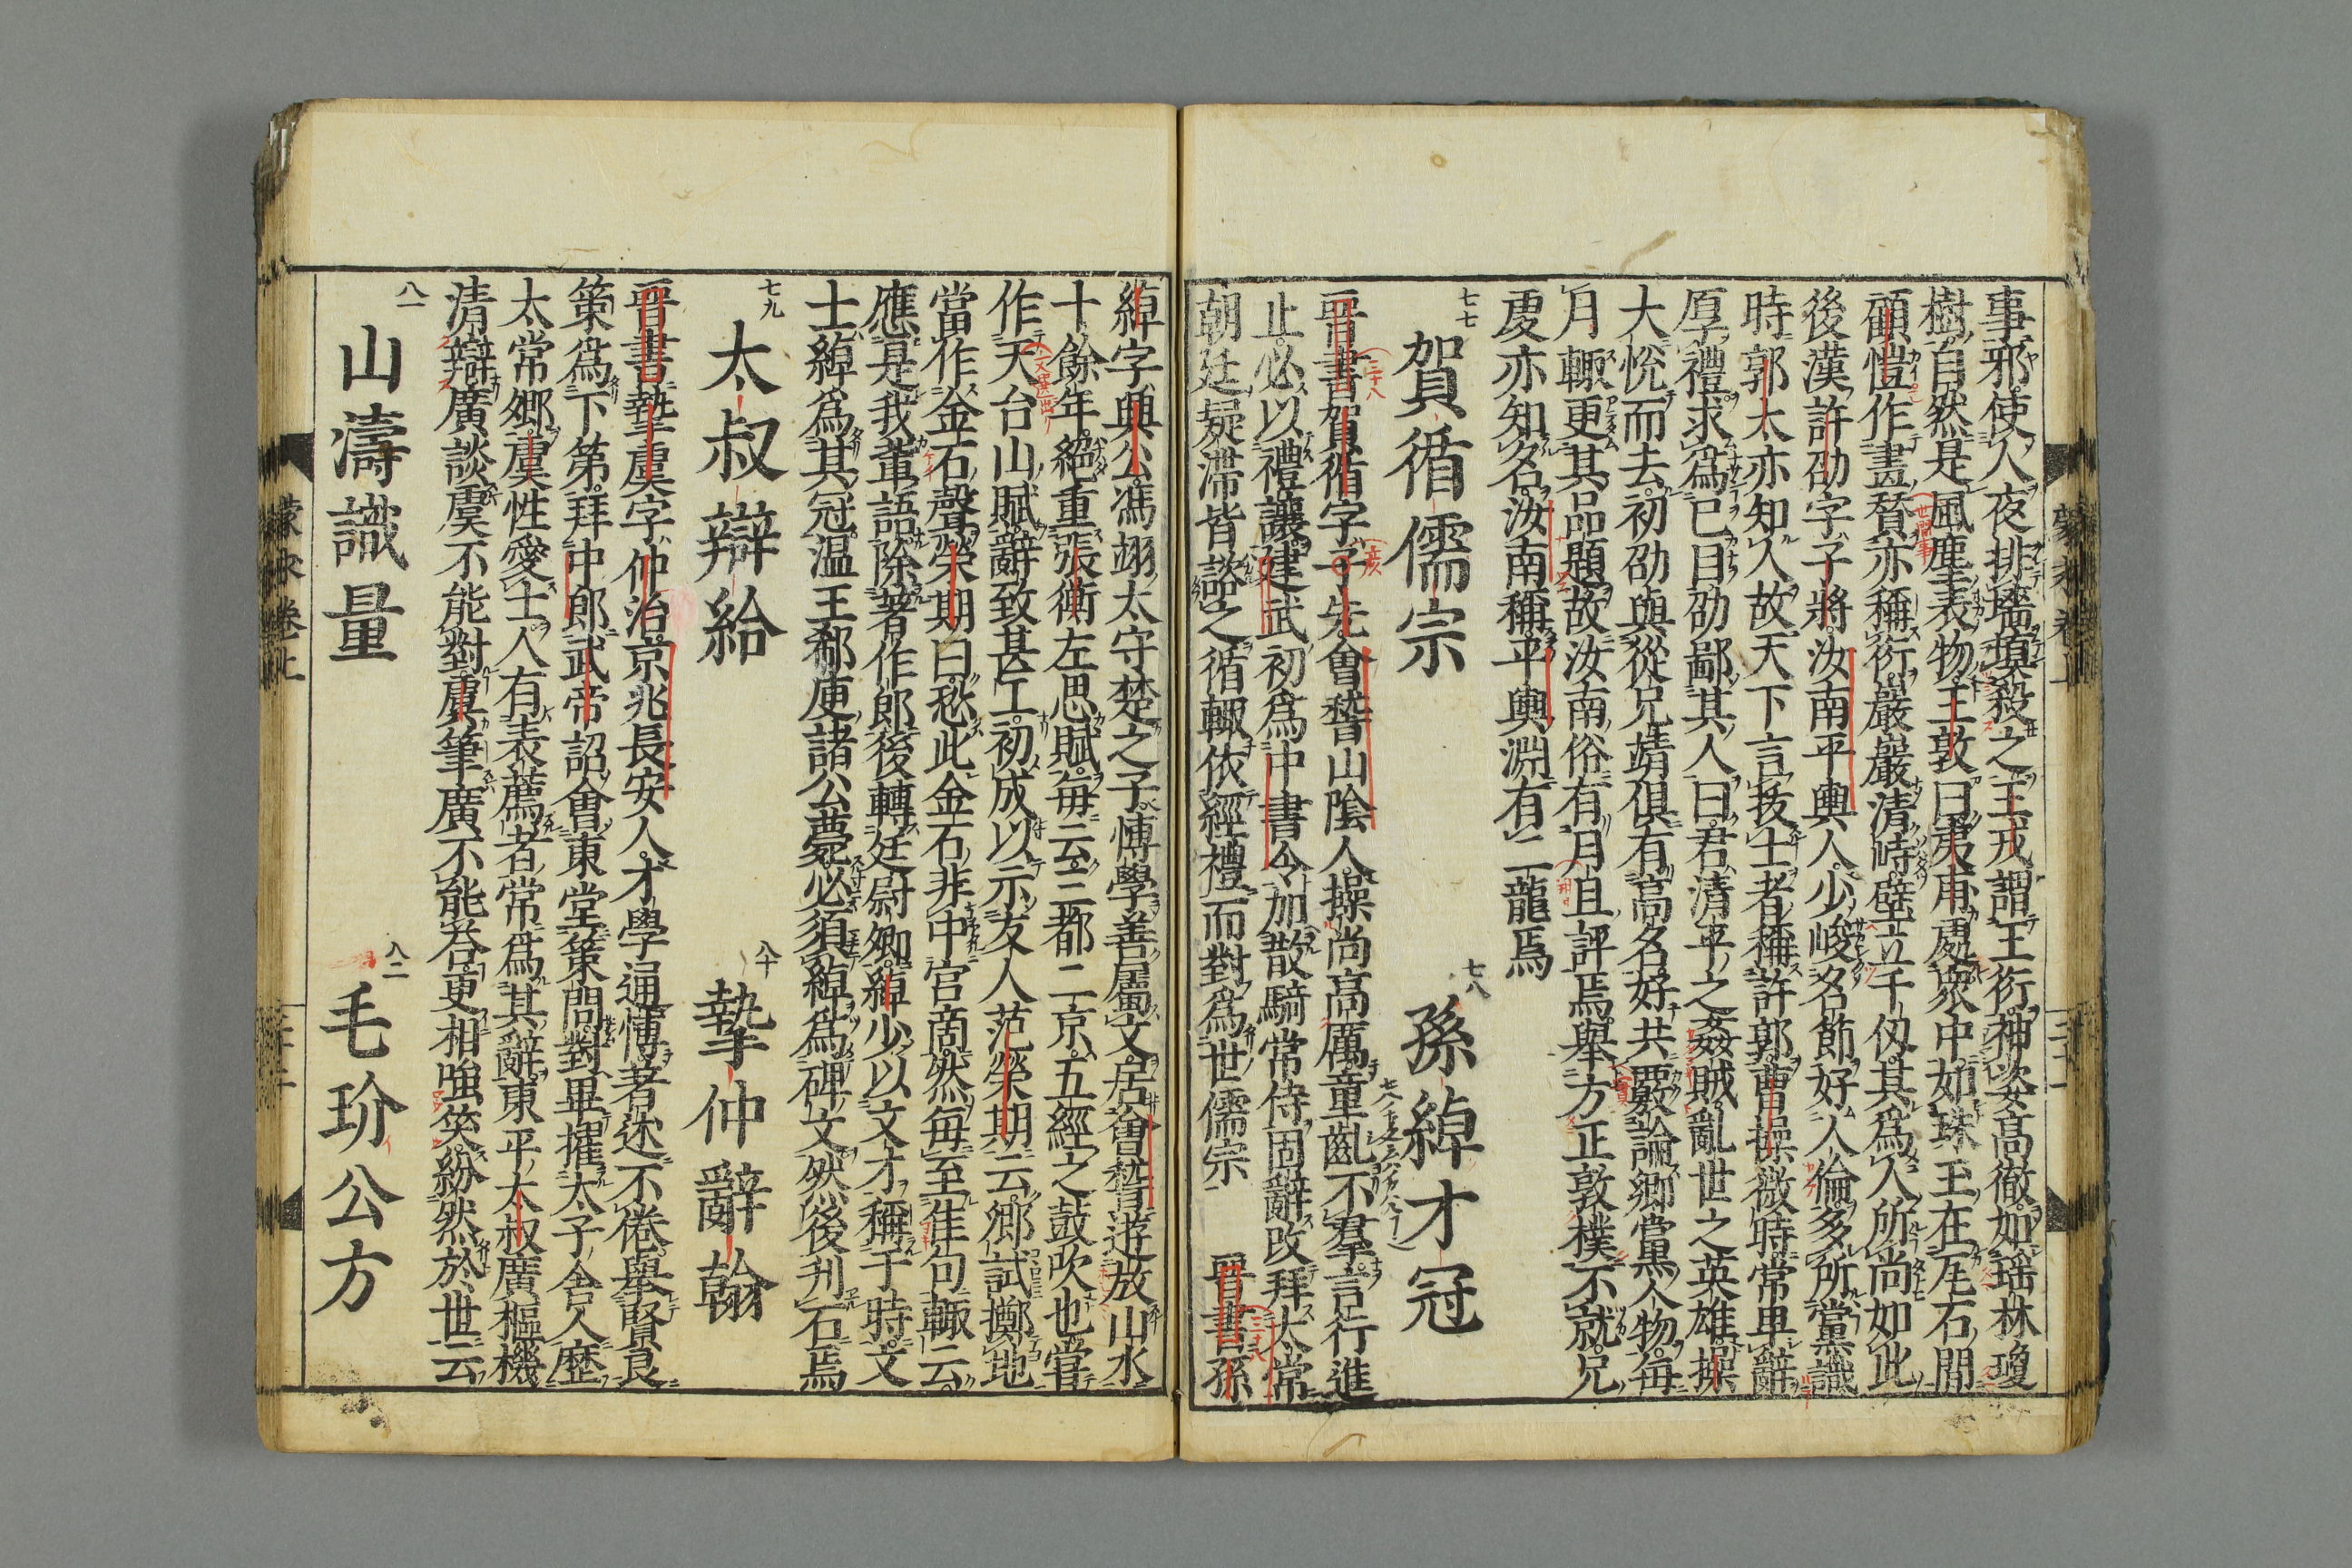 事邪使人夜排墻塡殺之王戎謂王衍神姿高徹如瑶林瓊
樹自然是風塵表物王敦曰夷甫處衆中如珠玉在瓦石間
顧愷作畫賛亦稱衍巖巖清峙壁立千仭其爲人所尚如此
後漢許劭字子將汝南平輿人少峻名節好人倫多所賞識
時郭太亦知人故天下言拔士者稱許郭曹操微時常卑辭
厚禮求爲己目劭鄙其人曰君清平之姦賊亂世之英雄操
大恱而去初劭與從兄靖俱有高名好共覈論鄉黨人物毎
月輙更其品題故汝南俗有月旦評焉舉方正敦樸不就兄
虔亦知名汝南稱平輿淵有二龍焉
七七 賀循儒宗 七八 孫綽才冠
晉書賀循字子先會稽山陰人操尚高厲童齓不羣言行進
止必以禮讓建武初爲中書令加散騎常侍固辭改拜太常
朝廷疑滯皆諮之循輙依經禮而對爲世儒宗 晉書孫
綽字興公馮翊太守楚之子博學善屬文居會稽遊放山水
十餘年絕重張衡左思賦毎云三都二京五經之鼓吹也嘗
作天台山賦辭致甚工初成以示友人范榮期云鄉試擲地
當作金石聲榮期曰恐此金石非中宫商然毎至佳句輙云
應是我輩語除著作郎後轉廷尉卿綽少以文才稱于時文
士綽爲其冠温王郗庾諸公薨必須綽爲碑文然後刋石焉
七九 太叔辯給 八十 摯仲辭翰
晉書摯虞字仲治京兆長安人才學通博著述不倦舉賢良
策爲下第拜中郎武帝詔會東堂策問對畢擢太子舍人歷
太常鄉虞性愛士人有表薦者常爲其辭東平太叔廣樞機
清辯廣談虞不能對虞筆廣不能荅更相嗤笑紛然於世云
八一 山濤識量 八二 毛玠公方
蒙求卷上